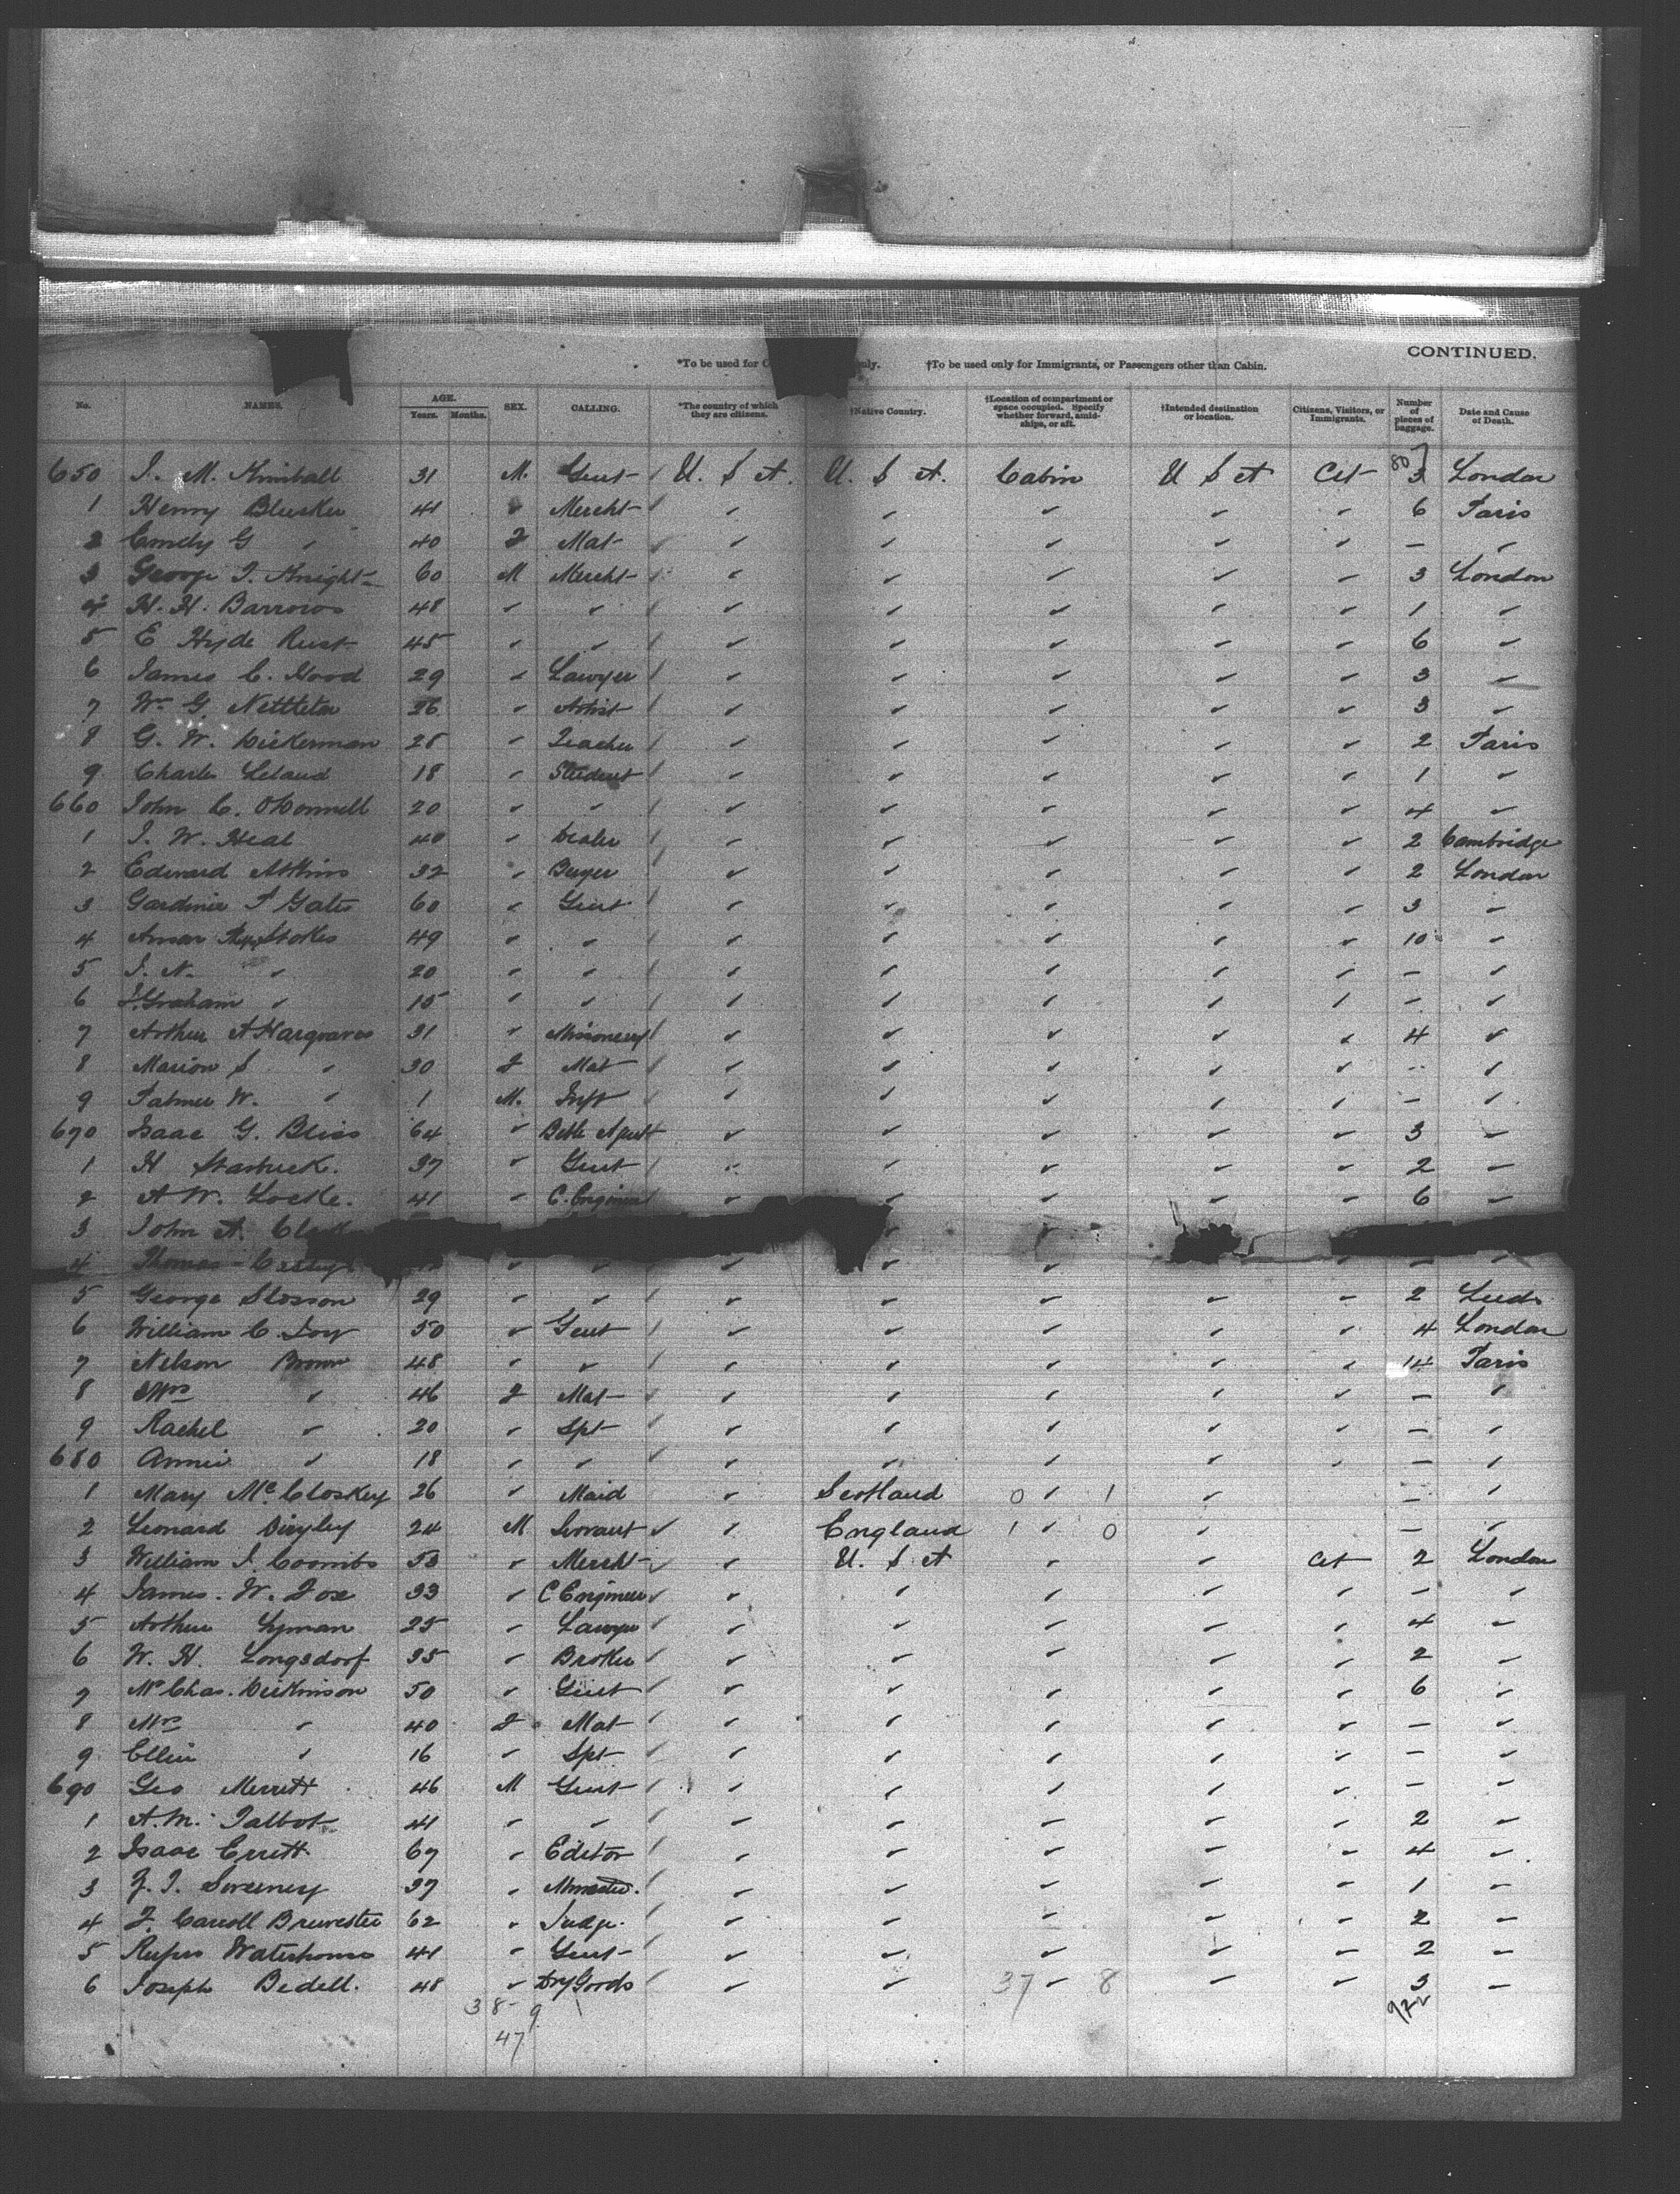 CONTINUED.
*To be used for C nly. †To be used only for Immigrants, or Passengers other than Cabin.
No. NAMES. AGE. Years. Months. SEX. CALLING. *The country of which they are citizens. †Native Country. †Location of compartment or space occupied. Specify whether forward, amidships, or aft. †Intended destination or location. Citizens, Visitors, or Immigrants. Number of pieces of baggage. Date and Cause of Death.
807
650 J. M. Kimball 31 M. Gent U. S A. U. S A. Cabin U S A Cit 3 London
1 Henry 41 " Mercht " " " " " 6 Paris
2 Emily G " 40 F Mat " " " " " — "
3 George T. Knight 60 M Mercht " " " " " 3 London
4 H. H. Barrows 48 " " " " " " " 1 "
5 E Hyde Rust 45 " " " " " " " 6 "
6 James C. Hood 29 " Lawyer " " " " " 3 "
7 Wm G. Nettleton 26 " Artist " " " " " 3 "
8 G. W. Dickerman 28 " Teacher " " " " " 2 Paris
9 Charles Leland 18 " Student " " " " " 1 "
660 John C. O'Connell 20 " " " " " " " 4 "
1 J. W. Heal 40 " Dealer " " " " " 2 Cambridge
2 Edward Atkins 32 " Buyer " " " " " 2 London
3 Gardiner P Gates 60 " Gent " " " " " 3 "
4 Stokes 49 " " " " " " " 10 "
5 J. N. " 20 " " " " " " " — "
6 J. Graham " 15 " " " " " " " — "
7 Arthur A Hargraves 31 " Missionery " " " " " 4 "
8 Marion S " 30 F Mat " " " " " — "
9 Palmer W. " 1 M. Inft " " " " " — "
670 Isaac G. Bliss 64 " Bible Agent " " " " " 3 "
1 H Starbuck. 37 " Gent " " " " " 2 "
2 A W. Locke. 41 " C. Engineer " " " " " 6 "
3 John A. Clark
4 Thomas " " " " " — "
5 George Slosson 29 " " " " " " " 2 Leeds
6 William C. Joy 50 " Gent " " " " " 4 London
7 Nelson Brown 48 " " " " " " " 14 Paris
8 Mrs " 46 F Mat " " " " " — "
9 Rachel " 20 " Spt " " " " " — "
680 Annie " 18 " " " " " " " — "
1 Mary McCloskey 26 " Maid " Scotland 0 " 1 " — "
2 Leonard 24 M Servant " England 1 " 0 " — "
3 William J. Coombs 53 " Mercht " U. S. A " " Cit 2 London
4 James. W. Fox 33 " C Engineer " " " " " — "
5 Arthur Lyman 25 " Lawyer " " " " " 4 "
6 W. H. Longsdorf 35 " Broker " " " " " 2 "
7 Mr Chas. Dickinson 50 " Gent " " " " " 6 "
8 Mrs " 40 F Mat " " " " " — "
9 Ellen " 16 " Spt " " " " " — "
690 Geo Merrett 46 M Gent " " " " " — "
1 A. M. Talbot 41 " " " " " " " 2 "
2 Isaac Errett 67 " Editor " " " " " 4 "
3 Z. T. Sweeney 37 " " " " " " 1 "
4 F. Carroll Brewster 62 " Judge. " " " " " 2 "
5 Rufus Waterhouse 41 " Gent " " " " " 2 "
6 Joseph Bedell. 48 " Dry Goods " " 37 " 8 " " 3 "
38 9 922
47